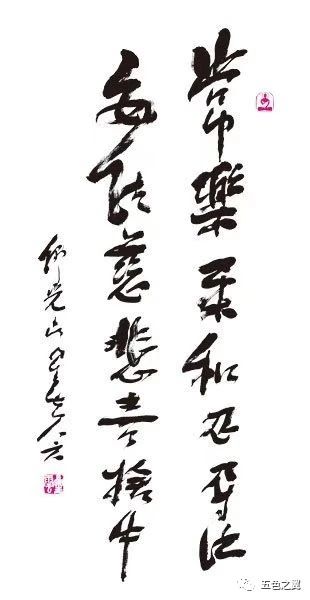 常樂柔和忍辱法
安住慈悲喜捨中
佛光山星雲八六
五色之翼